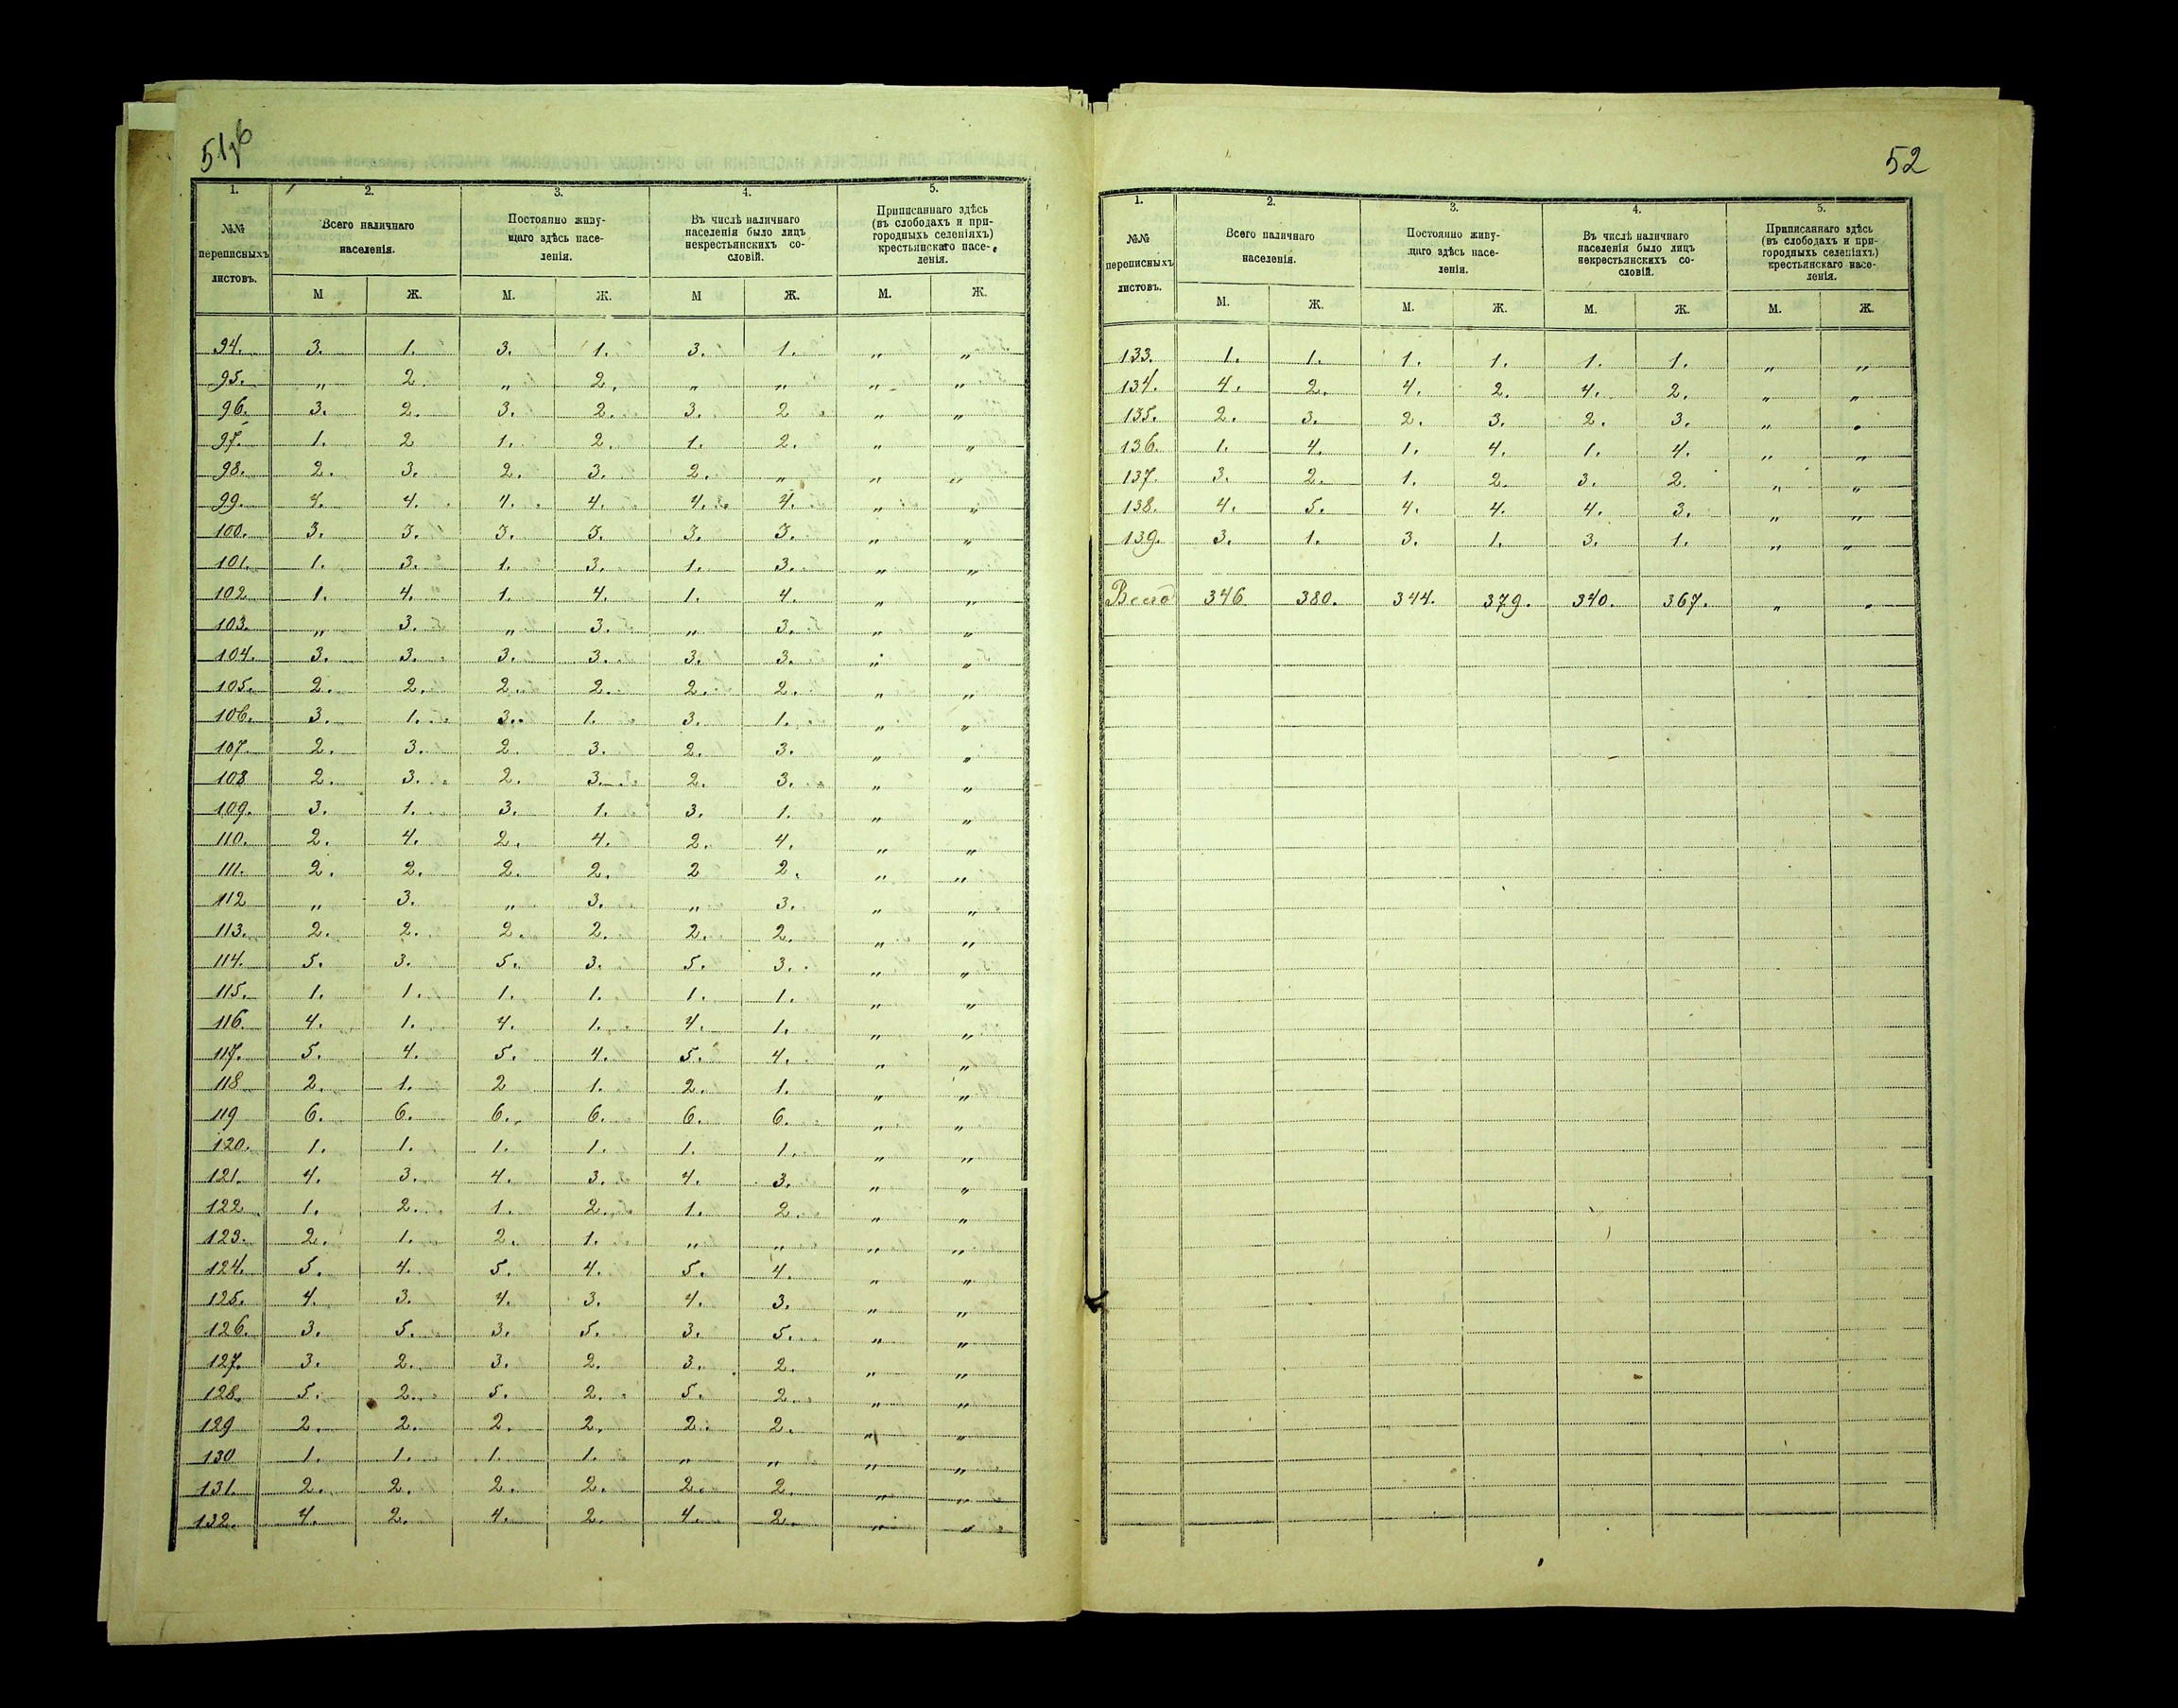 51об
1. 2. 3. 4. 5.
№№ переписныхъ листовъ.
Всего наличнаго населенія.
Постоянно живу-
щаго здѣсь насе-
ленія.
Въ числѣ наличнаго
населенія было лицъ
некрестьянскихъ со-
словій.
Приписаннаго здѣсь
(въ слободахъ и при-
городныхъ селеніяхъ)
крестьянскаго насе-
ленія.
М Ж. М. Ж. М Ж. М. Ж.
94. 3. 1. 3. 1. 3. 1. „ „
95. „ 2. „ 2. „ „ „ „
96. 3. 2. 3. 2. 3. 2 „ „
97. 1. 2 1. 2. 1. 2. „ „
98. 2. 3. 2. 3. 2. „ „ „
99. 4. 4. 4. 4. 4. 4. „ „
100. 3. 3. 3. 3. 3. 3. „ „
101. 1. 3. 1. 3. 1. 3. „ „
102 1. 4. 1. 4. 1. 4. „ „
103. „ 3. „ 3. „ 3. „ „
104. 3. 3. 3. 3. 3. 3. „ „
105. 2. 2. 2. 2. 2. 2. „ „
106. 3. 1. 3. 1. 3. 1. „ „
107. 2. 3. 2. 3. 2. 3. „ „
108 2. 3. 2. 3. 2. 3. „ „
109. 3. 1. 3. 1. 3. 1. „ „
110. 2. 4. 2. 4. 2. 4. „ „
111. 2. 2. 2. 2. 2 2. „ „
112 „ 3. „ 3. „ 3. „ „
113. 2. 2. 2. 2. 2. 2. „ „
114. 5. 3. 5. 3. 5. 3. „ „
115. 1. 1. 1. 1. 1. 1. „ „
116. 4. 1. 4. 1. 4. 1. „ „
117. 5. 4. 5. 4. 5. 4. „ „
118 2. 1. 2 1. 2. 1. „ „
119 6. 6. 6. 6. 6. 6. „ „
120. 1. 1. 1. 1. 1. 1. „ „
121. 4. 3. 4. 3. 4. 3. „ „
122 1. 2. 1. 2. 1. 2. „ „
123. 2. 1. 2. 1. „ „ „ „
124. 5. 4. 5. 4. 5. 4. „ „
125. 4. 3. 4. 3. 4. 3. „ „
126. 3. 5. 3. 5. 3. 5. „ „
127. 3. 2. 3. 2. 3. 2. „ „
128. 5. 2. 5. 2. 5. 2. „ „
129 2. 2. 2. 2. 2. 2. „ „
130 1. 1. 1. 1. „ „ „ „
131. 2. 2. 2. 2. 2. 2. „ „
132. 4. 2. 4. 2. 4. 2. „ „
52
1. 2. 3. 4. 5.
№№ переписныхъ листовъ.
Всего наличнаго населенія.
Постоянно живу-
щаго здѣсь насе-
ленія.
Въ числѣ наличнаго
населенія было лицъ
некрестьянскихъ со-
словій.
Приписаннаго здѣсь
(въ слободахъ и при-
городныхъ селеніяхъ)
крестьянскаго насе-
ленія.
М. Ж. М. Ж. М. Ж. М. Ж.
133. 1. 1. 1. 1. 1. 1. „ „
134. 4. 2. 4. 2. 4. 2. „ „
135. 2. 3. 2. 3. 2. 3. „ „
136. 1. 4. 1. 4. 1. 4. „ „
137. 3. 2. 1. 2. 3. 2. „ „
138. 4. 5. 4. 4. 4. 3. „ „
139. 3. 1. 3. 1. 3. 1. „ „
Всего 346 380. 344. 379. 340. 367. „ „